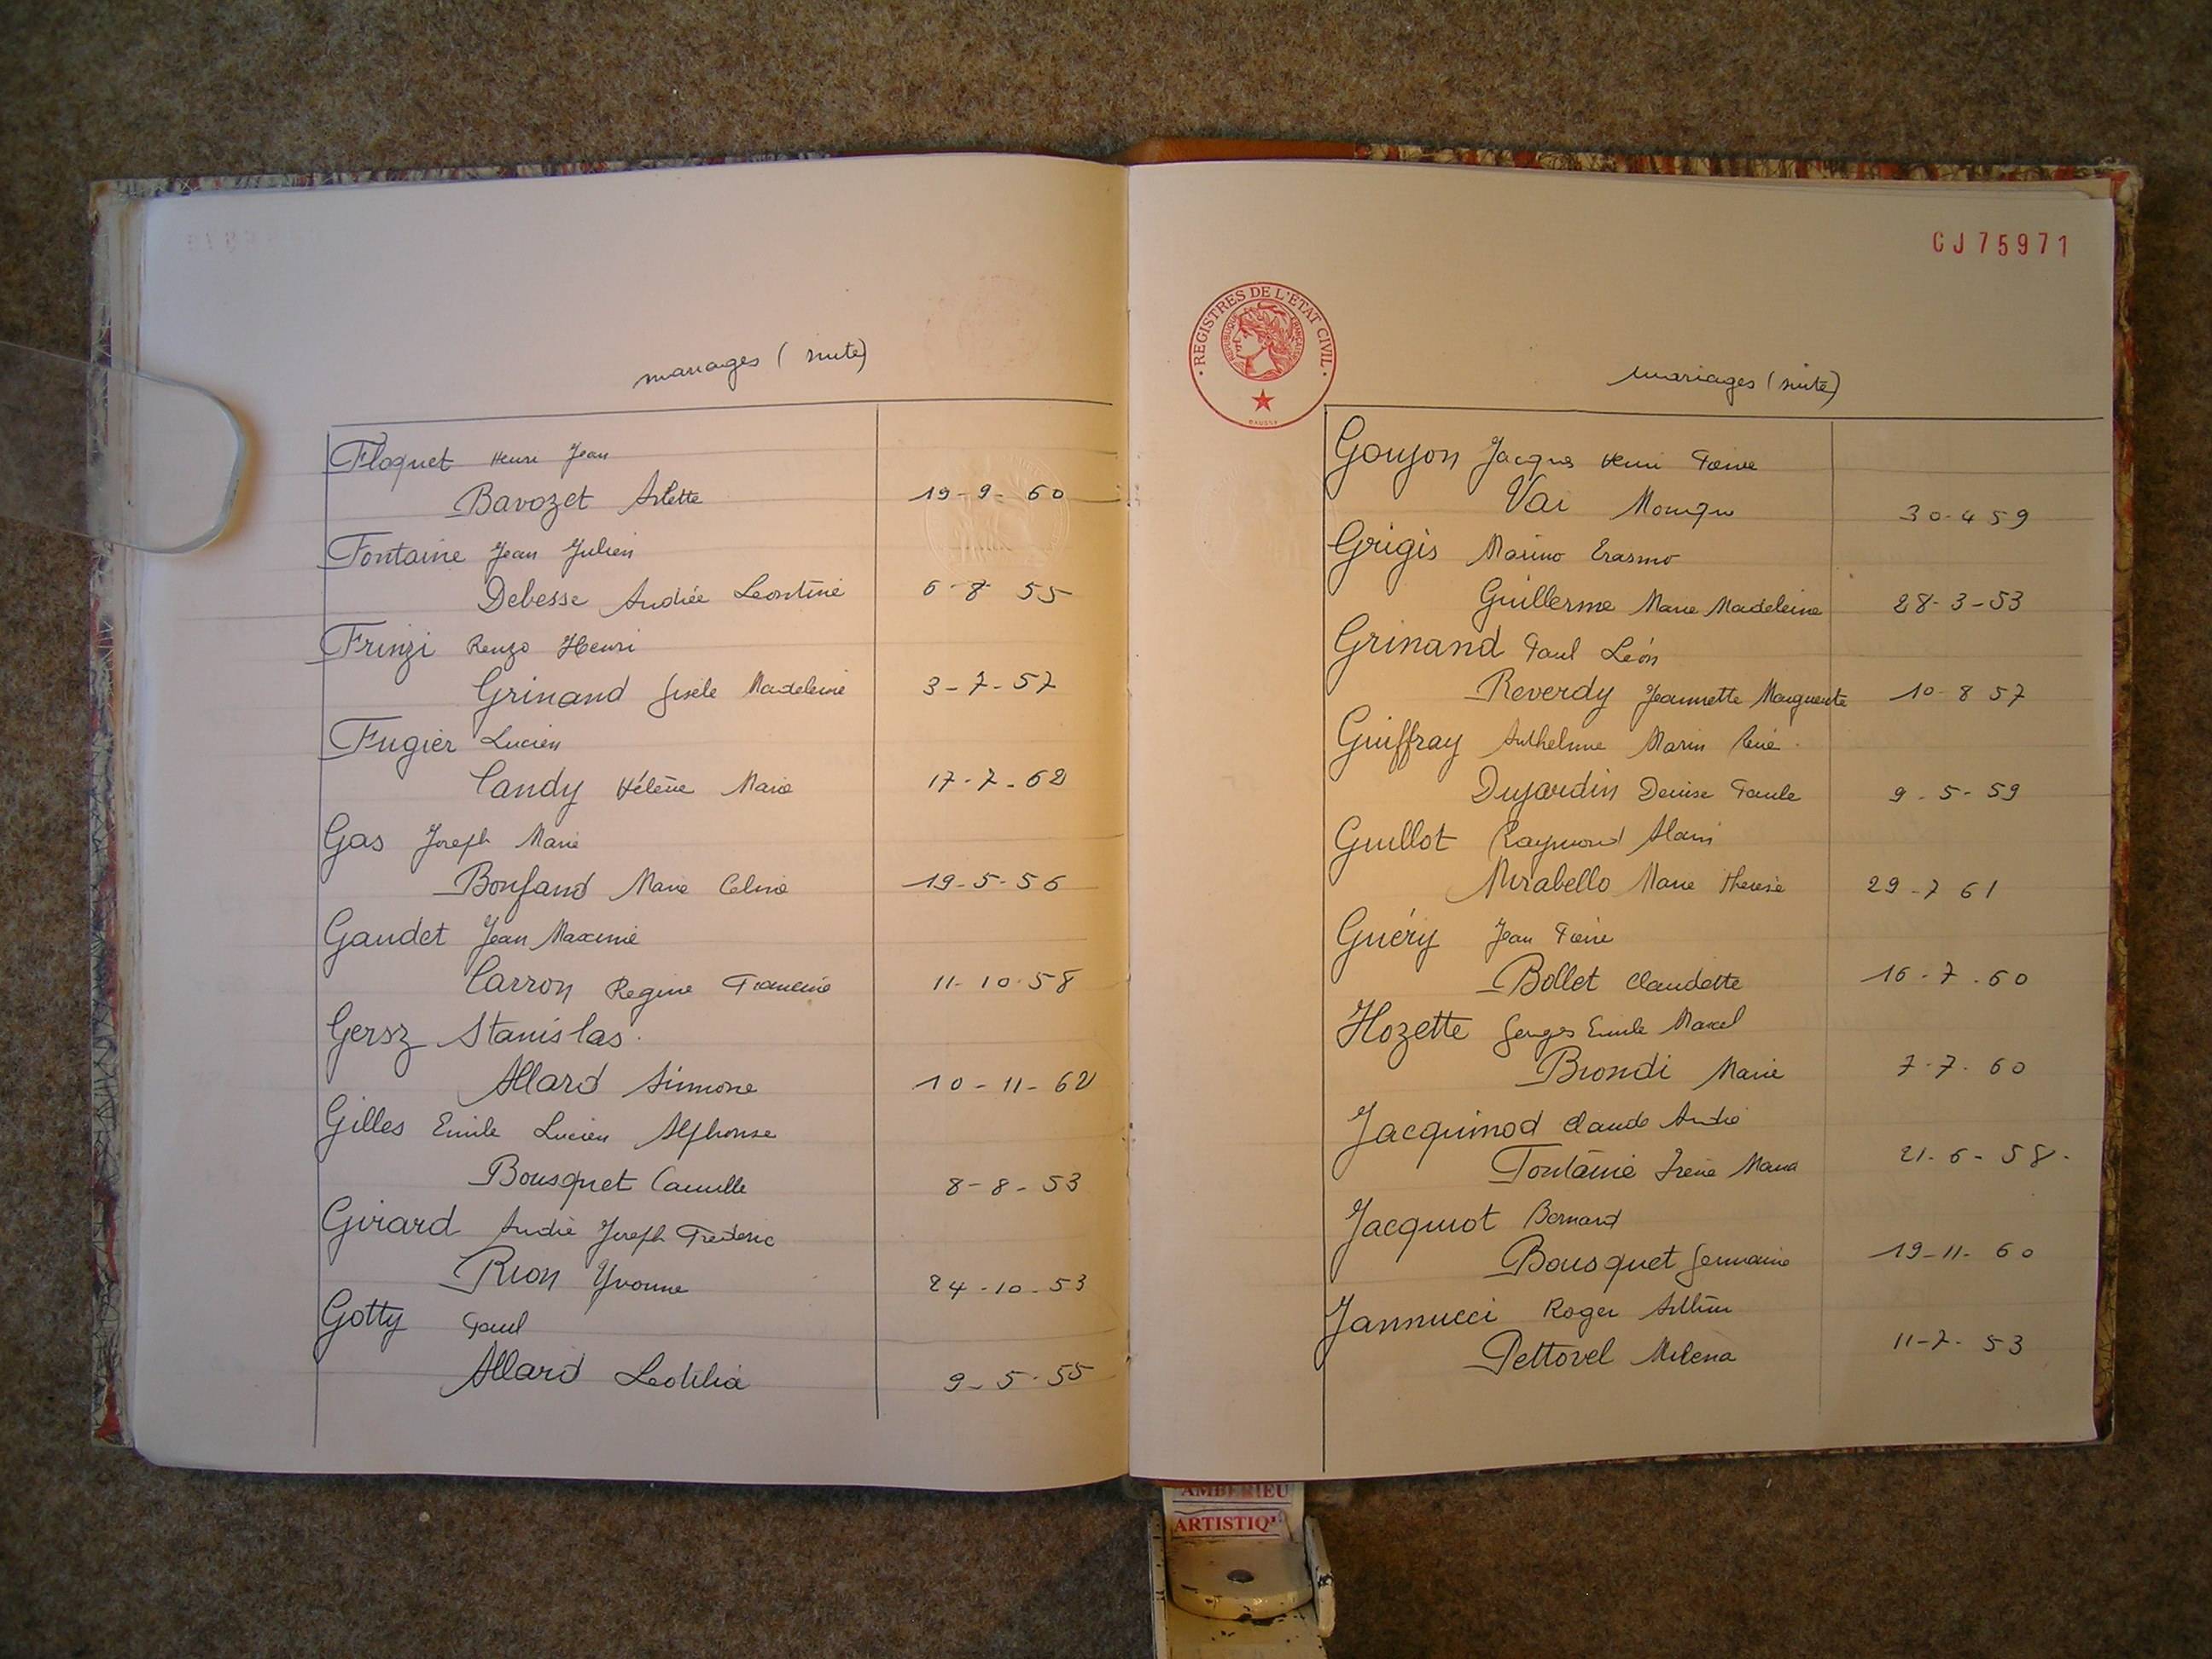 mariages (suite)
Floquet Henri Jean
Bavozet Arlette 19-9-60
Fontaine Jean Julien
Debesse Andrée Leontine 6-8 55
Frinzi Renzo Henri
Grinand Gisèle Madeleine 3-7-57
Fugier Lucien
Candy Hélène Marie 17-7-62
Gas Joseph Marie
Bonfand Marie Celine 19-5-56
Gaudet Jean Maxime
Carron Regine Francine 11-10-58
Gersz Stanislas
Allard Simone 10-11-62
Gilles Emile Lucien Alphonse
Bousquet Camille 8-8-53
Girard André Joseph Frederic
Rion Yvonne 24-10-53
Gotty Paul
Allard 9-5-55
CJ75971
REGISTRES DE L'ETAT CIVIL
REPUBLIQUE FRANÇAISE
mariages (suite)
Goujon Jacques Henri Pierre
Vai Monique 30-4 59
Grigis Marino Erasmo
Guillerme Marie Madeleine 28-3-53
Grinand Paul Léon
Reverdy Jeannette Marguerite 10-8 57
Guiffray Anthelme Marin René
Dujardin Denise Paule 9-5-59
Guillot Raymond Alain
Mirabello Marie Therese 29-7 61
Guéry Jean Pierre
Bollet Claudette 16-7-60
Hozette Georges Emile Marcel
Biondi Marie 7-7-60
Jacquinod Claude André
Fontaine Irene Maria 21-6-58
Jacquiot Bernard
Bousquet Germaine 19-11-60
Jannucci Roger Arthur
Pettovel Milena 11-7-53
AMBERIEU
ARTISTIQ